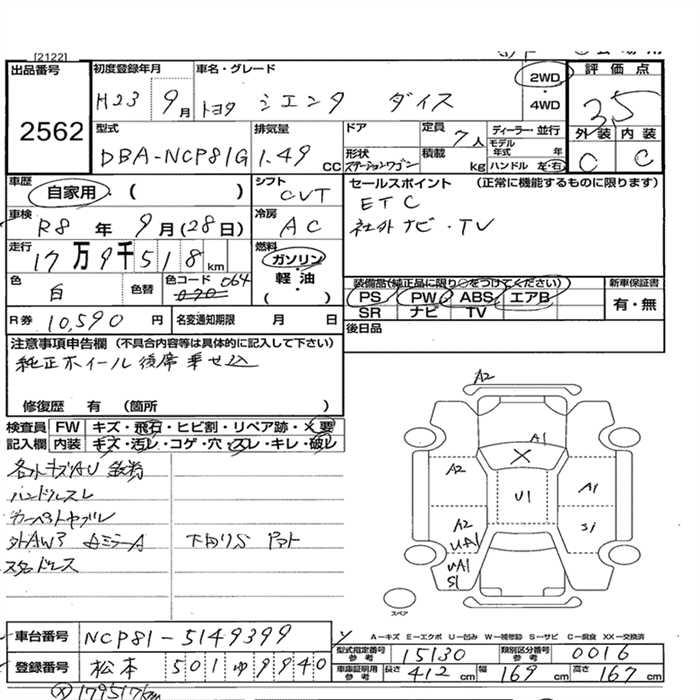 [2122]
出品番号
2562
初度登録年月
H23 9月
車名・グレード
トヨタ シエンタ ダイス
2WD
・
4WD
評価点
3.5
外装 内装
C C
型式
DBA-NCP81G
排気量
1.49 CC
ドア
形状
ステーションワゴン
定員
7人
積載
kg
ディーラー・並行
モデル年式 年
ハンドル 左・右
車歴
自家用・( )
シフト
CVT
車検
R8年 9月(28日)
冷房
AC
走行
17万9千518km
燃料
ガソリン
・
軽・油
( )
色
白
色替
色コード 064
R券 10,590円
名変通知期限 月 日
セールスポイント (正常に機能するものに限ります)
ETC
社外ナビ・TV
装備品(純正品に限り○をつけてください)
PS PW ABS エアB
SR ナビ TV
新車保証書
有・無
後日品
注意事項申告欄 (不具合内容等は具体的に記入して下さい)
純正ホイール後席乗せ込
修復歴 有 (箇所 )
検査員 FW キズ・飛石・ヒビ割・リペア跡・X要
記入欄 内装 キズ・汚レ・コゲ・穴・スレ・キレ・破レ
ハンドルスレ
A2
A1
X
A2
U1
A1
A2
UA1
S1
UA1
S1
スペア
A－キズ E－エクボ U－凹み W－補修跡 S－サビ C－腐食 XX－交換済
車台番号 NCP81-5149399
登録番号 松本 501 ゆ9940
型式指定番号 参考 15130
類別区分番号 参考 0016
車庫証明用 参考 長さ 412cm 幅 169cm 高さ 167cm
179517km